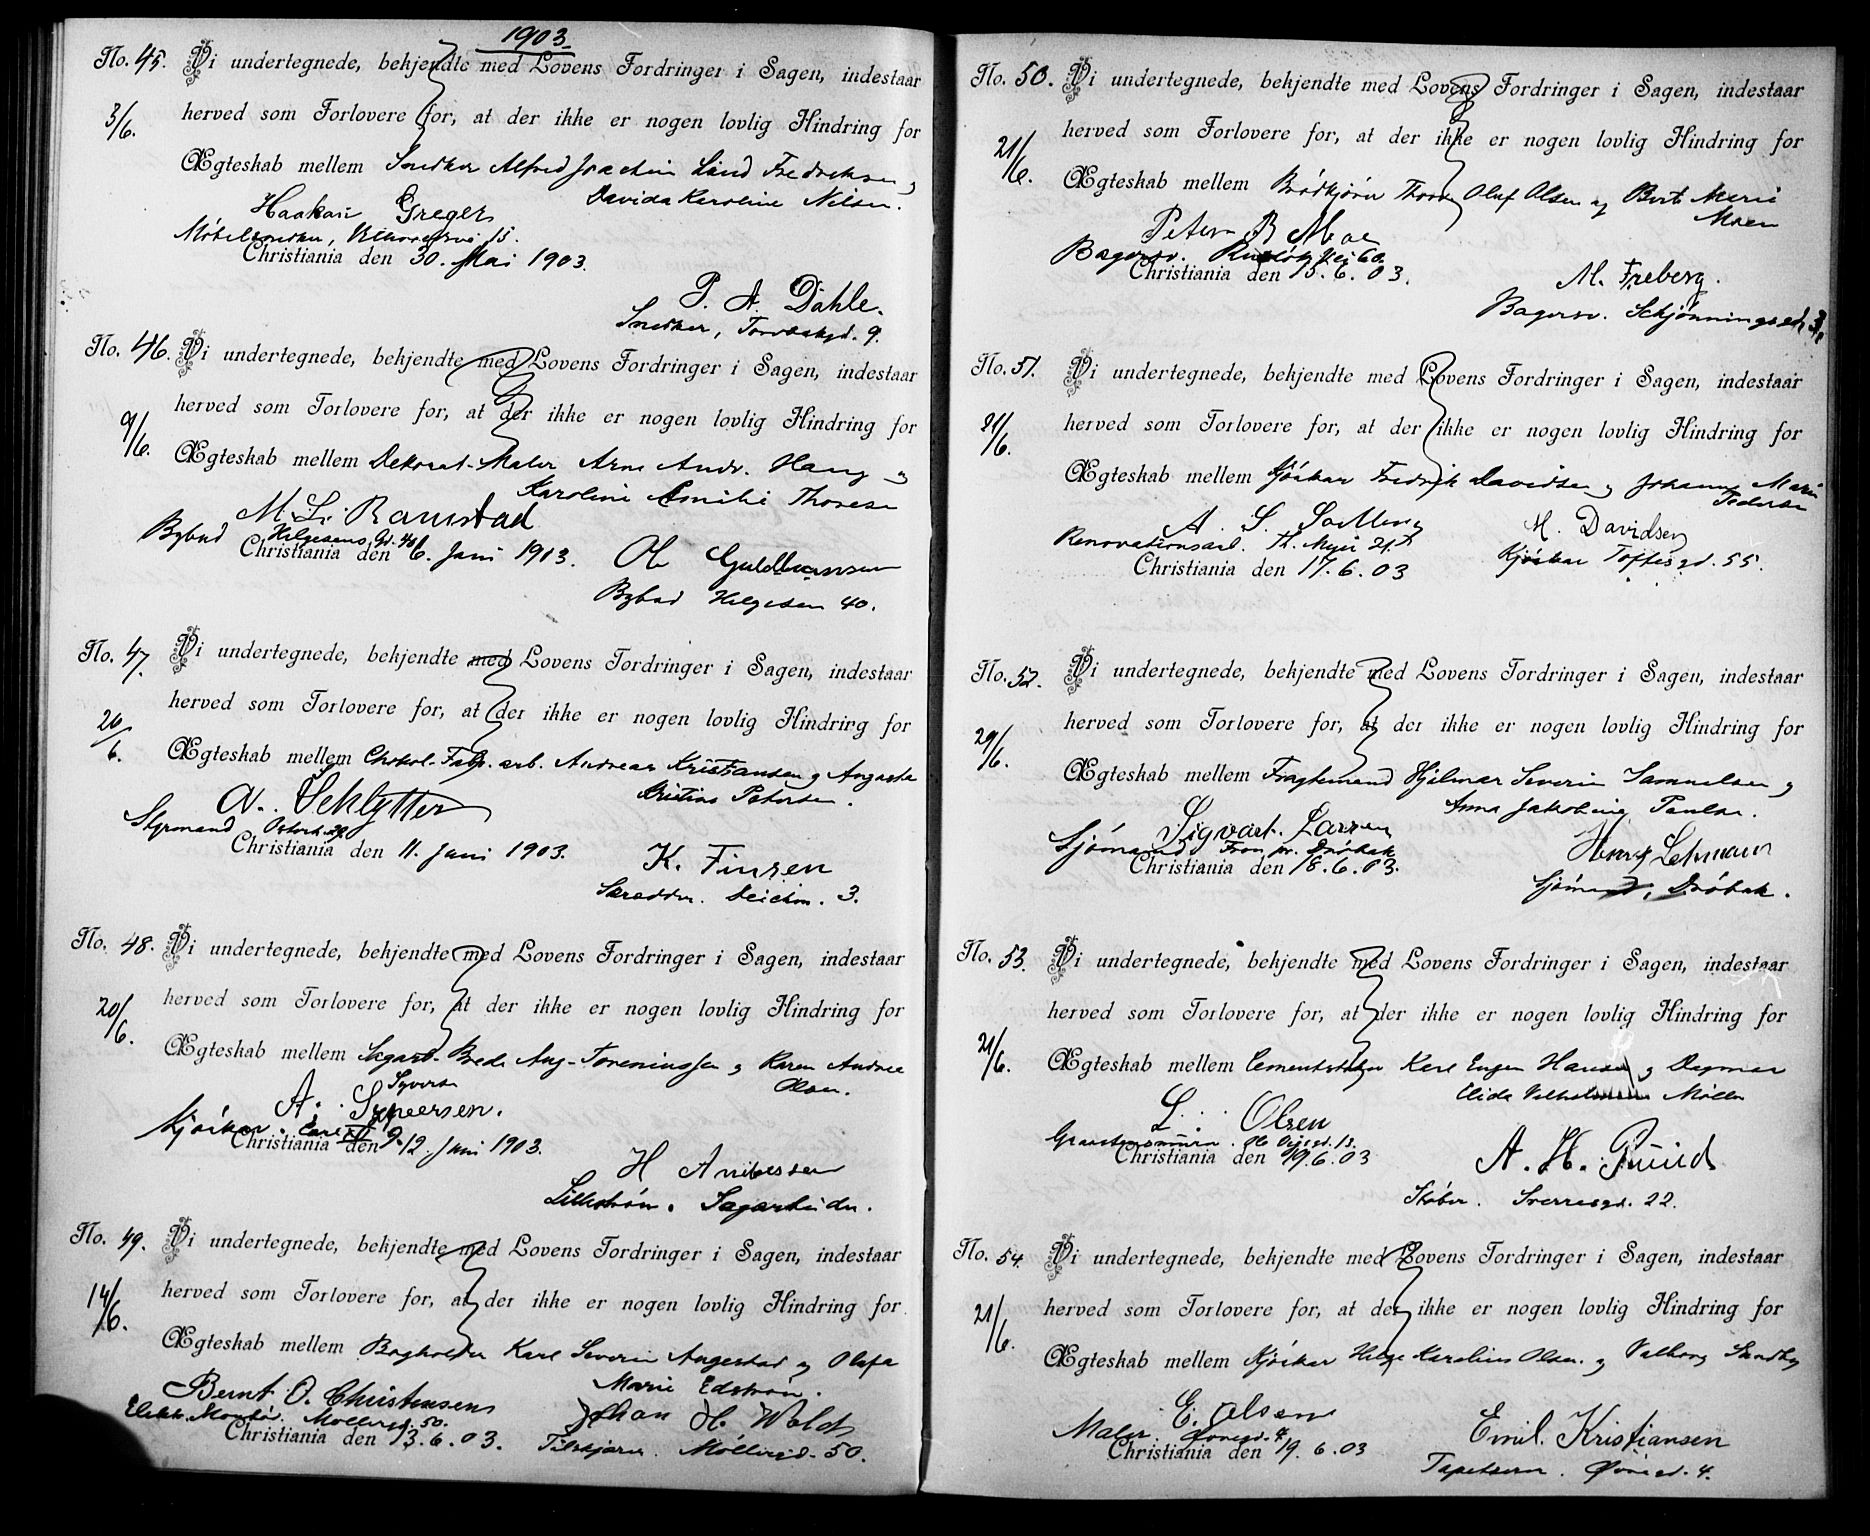 1903
No. 45. Vi undertegnede, bekjendte med Lovens Fordringer i Sagen, indestaar
3/6. herved som Forlovere for, at der ikke er nogen lovlig Hindring for
Ægteskab mellem Snedker Alfred Joachim Lund Fredriksen
Davida Karoline Nilsen.
Haakon Greger
Møbelsnedker, 15.
Christiania den 30. Mai 1903.
P. A. Dahle.
Snedker, 9.
No. 46. Vi undertegnede, bekjendte med Lovens Fordringer i Sagen, indestaar
herved som Forlovere for, at der ikke er nogen lovlig Hindring for
9/6. Ægteskab mellem Dekorat. Maler Arne Andr. Haug og
Karoline Emilie Thoresen
M. L. Ramstad
Bybud Helgesens Gd. 40
Christiania den 6. Juni 1903.
Ole Guldbransen
Bybud Helgesen 40.
No. 47. Vi undertegnede, bekjendte med Lovens Fordringer i Sagen, indestaar
herved som Forlovere for, at der ikke er nogen lovlig Hindring for
20/6. Ægteskab mellem Chokol. Fabr. arb. Andreas Kristiansen og Augusta
Kristine Petersen.
A. Schlytter
Styrmand
Christiania den 11. Juni 1903.
K. Finsen
Skredder. Deichm. 3.
No. 48. Vi undertegnede, bekjendte med Lovens Fordringer i Sagen, indestaar
herved som Forlovere for, at der ikke er nogen lovlig Hindring for
20/6. Ægteskab mellem Sagarb. Brede Aug. og Karen Andrea
Olsen.
Syversen
A. Syveersen.
Kjøikar. Carl XII 9.
Christiania den 12. Juni 1903.
H Andersen
Lillestrøm. Sagarbeider.
No. 49. Vi undertegnede, bekjendte med Lovens Fordringer i Sagen, indestaar
herved som Forlovere for, at der ikke er nogen lovlig Hindring for
14/6. Ægteskab mellem Bogholder Karl Severin Angestad og Olafa
Marie Edstrøm.
Bernt O. Christensen
Elektr. Montør. Møllergd. 50.
Christiania den 13. 6. 03.
Johan H. Wold
Møllergd. 50.
No. 50. Vi undertegnede, bekjendte med Lovens Fordringer i Sagen, indestaar
herved som Forlovere for, at der ikke er nogen lovlig Hindring for
21/6. Ægteskab mellem Brødkjører Thor Oluf Olsen og Berte Marie
Moen
Peter B Moe
Bagersv. Vei 60.
Christiania den 15. 6. 03.
M. Freberg.
Bagersv. Schjønningsgd. 3
No. 51. Vi undertegnede, bekjendte med Lovens Fordringer i Sagen, indestaar
herved som Forlovere for, at der ikke er nogen lovlig Hindring for
21/6. Ægteskab mellem Kjøikar Fredrik Davidsen og Johanne Marie
Pedersen
A. S.
Renovationsarb. Th. Meyer 21.
Christiania den 17. 6. 03
H. Davidsen
Kjøikar Toftesgd. 55.
No. 52. Vi undertegnede, bekjendte med Lovens Fordringer i Sagen, indestaar
herved som Forlovere for, at der ikke er nogen lovlig Hindring for
29/6. Ægteskab mellem Fragtemand Hjalmar Severin Samuelsen og
Anna Jakobine Paulsen.
Sigvart. Larsen
Sjømand, Fron pr. Drøbak
Christiania den 18. 6. 03.
Henry Lehmann
Sjømand, Drøbak.
No. 53. Vi undertegnede, bekjendte med Lovens Fordringer i Sagen, indestaar
herved som Forlovere for, at der ikke er nogen lovlig Hindring for
21/6. Ægteskab mellem Cementstøber Karl Eugen Hansen og Dagmar
Elida Vilhelmine Møller
L. Olsen
13.
Christiania den 19. 6. 03
A. H. Ruud
Støber. Sverresgd. 22.
No. 54. Vi undertegnede, bekjendte med Lovens Fordringer i Sagen, indestaar
herved som Forlovere for, at der ikke er nogen lovlig Hindring for
21/6. Ægteskab mellem Kjøikar Helge Karelius Olsen. og Valborg Sundby
E. Olsen
Maler. Øvregd. 4
Christiania den 19. 6. 03
Emil. Kristiansen
Tapetserer. Øvregd. 4.